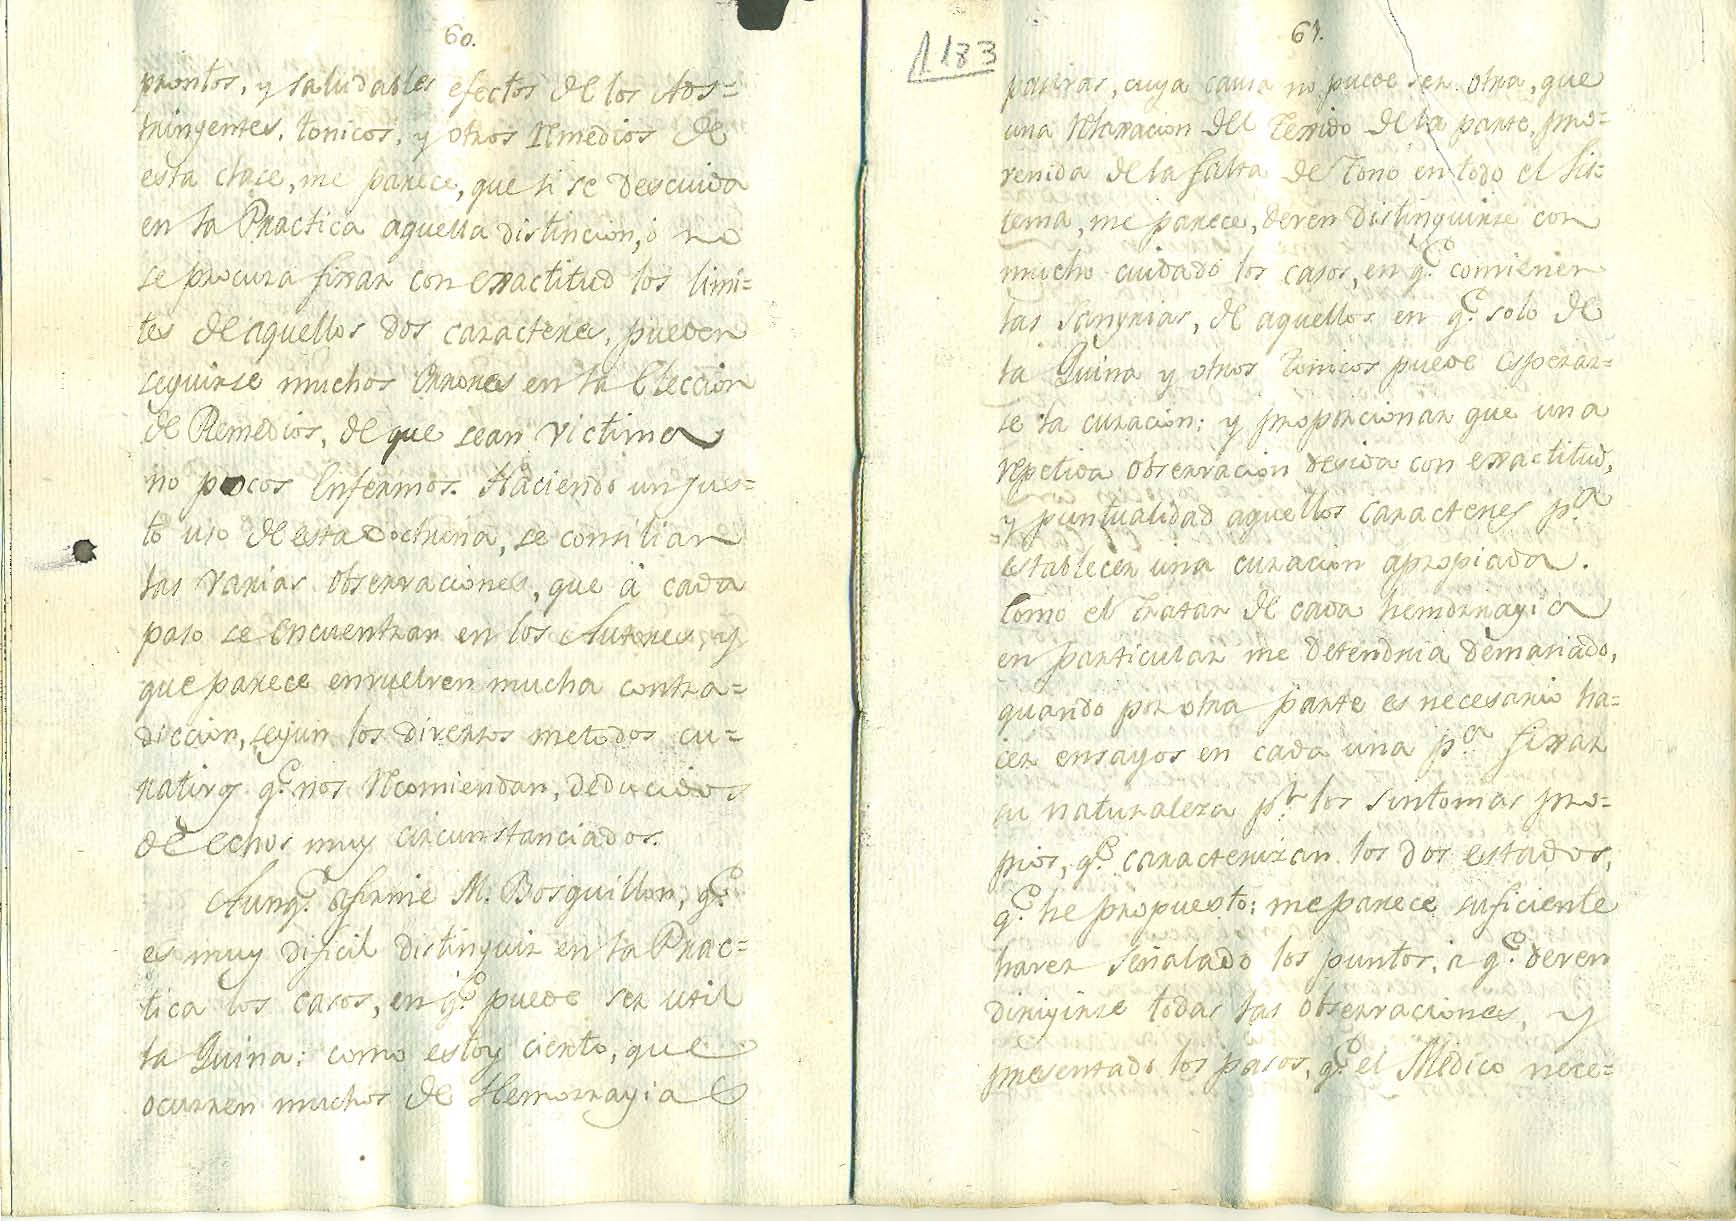 60.
prontos, y saludables efectos de los Aos=
tringentes, tonicos, y otros Remedios de
esta clase, me parece, que si se descuida
en la Practica aquella distincion, ó no
se procura fixar con exactitud los limi=
tes de aquellos dos caracteres, pueden
seguirse muchos errores en la Eleccion
de Remedios, de que sean victima
no pocos Enfermos. Haciendo un jus=
to uso de esta Doctrina, se consilian
las varias observaciones, que á cada
paso se encuentran en los Autores, y
que parece envuelven mucha contra=
diccion, segun los diversos metodos cu=
rativos q.e nos Recomiendan, deducidos
de echos muy circunstanciados.
Aunq.e afirme M. Bosquillon, q.e
es muy dificil distinguir en la Prac=
tica los casos, en q.e puede ser util
la Quina: como estoy cierto, que
ocurren muchos de Hemorragias
1183
61.
pasivas, cuya causa no puede ser otra, que
una Relaxacion del Texido de la parte, pro=
venida de la falta de Tono en todo el Sis=
tema, me parece, deven distinguirse con
mucho cuidado los casos, en q.e convienen
las Sangrias, de aquellos en q.e solo de
la Quina y otros Tonicos puede esperar=
se la curacion: y proporcionar que una
repetida observacion decida con exactitud,
y puntualidad aquellos caracteres p.a
establecer una curacion apropiada.
Como el tratar de cada hemorragia
en particular me detendria demasiado,
quando por otra parte es necesario ha=
cer ensayos en cada una p.a fixar
su naturaleza p.r los sintomas pro=
pios, q.e caracterizan los dos estados,
q.e he propuesto: me parece suficiente
haver señalado los puntos, a q.e deven
dirigirse todas las observaciones, y
presentado los pasos, q.e el Medico nece=